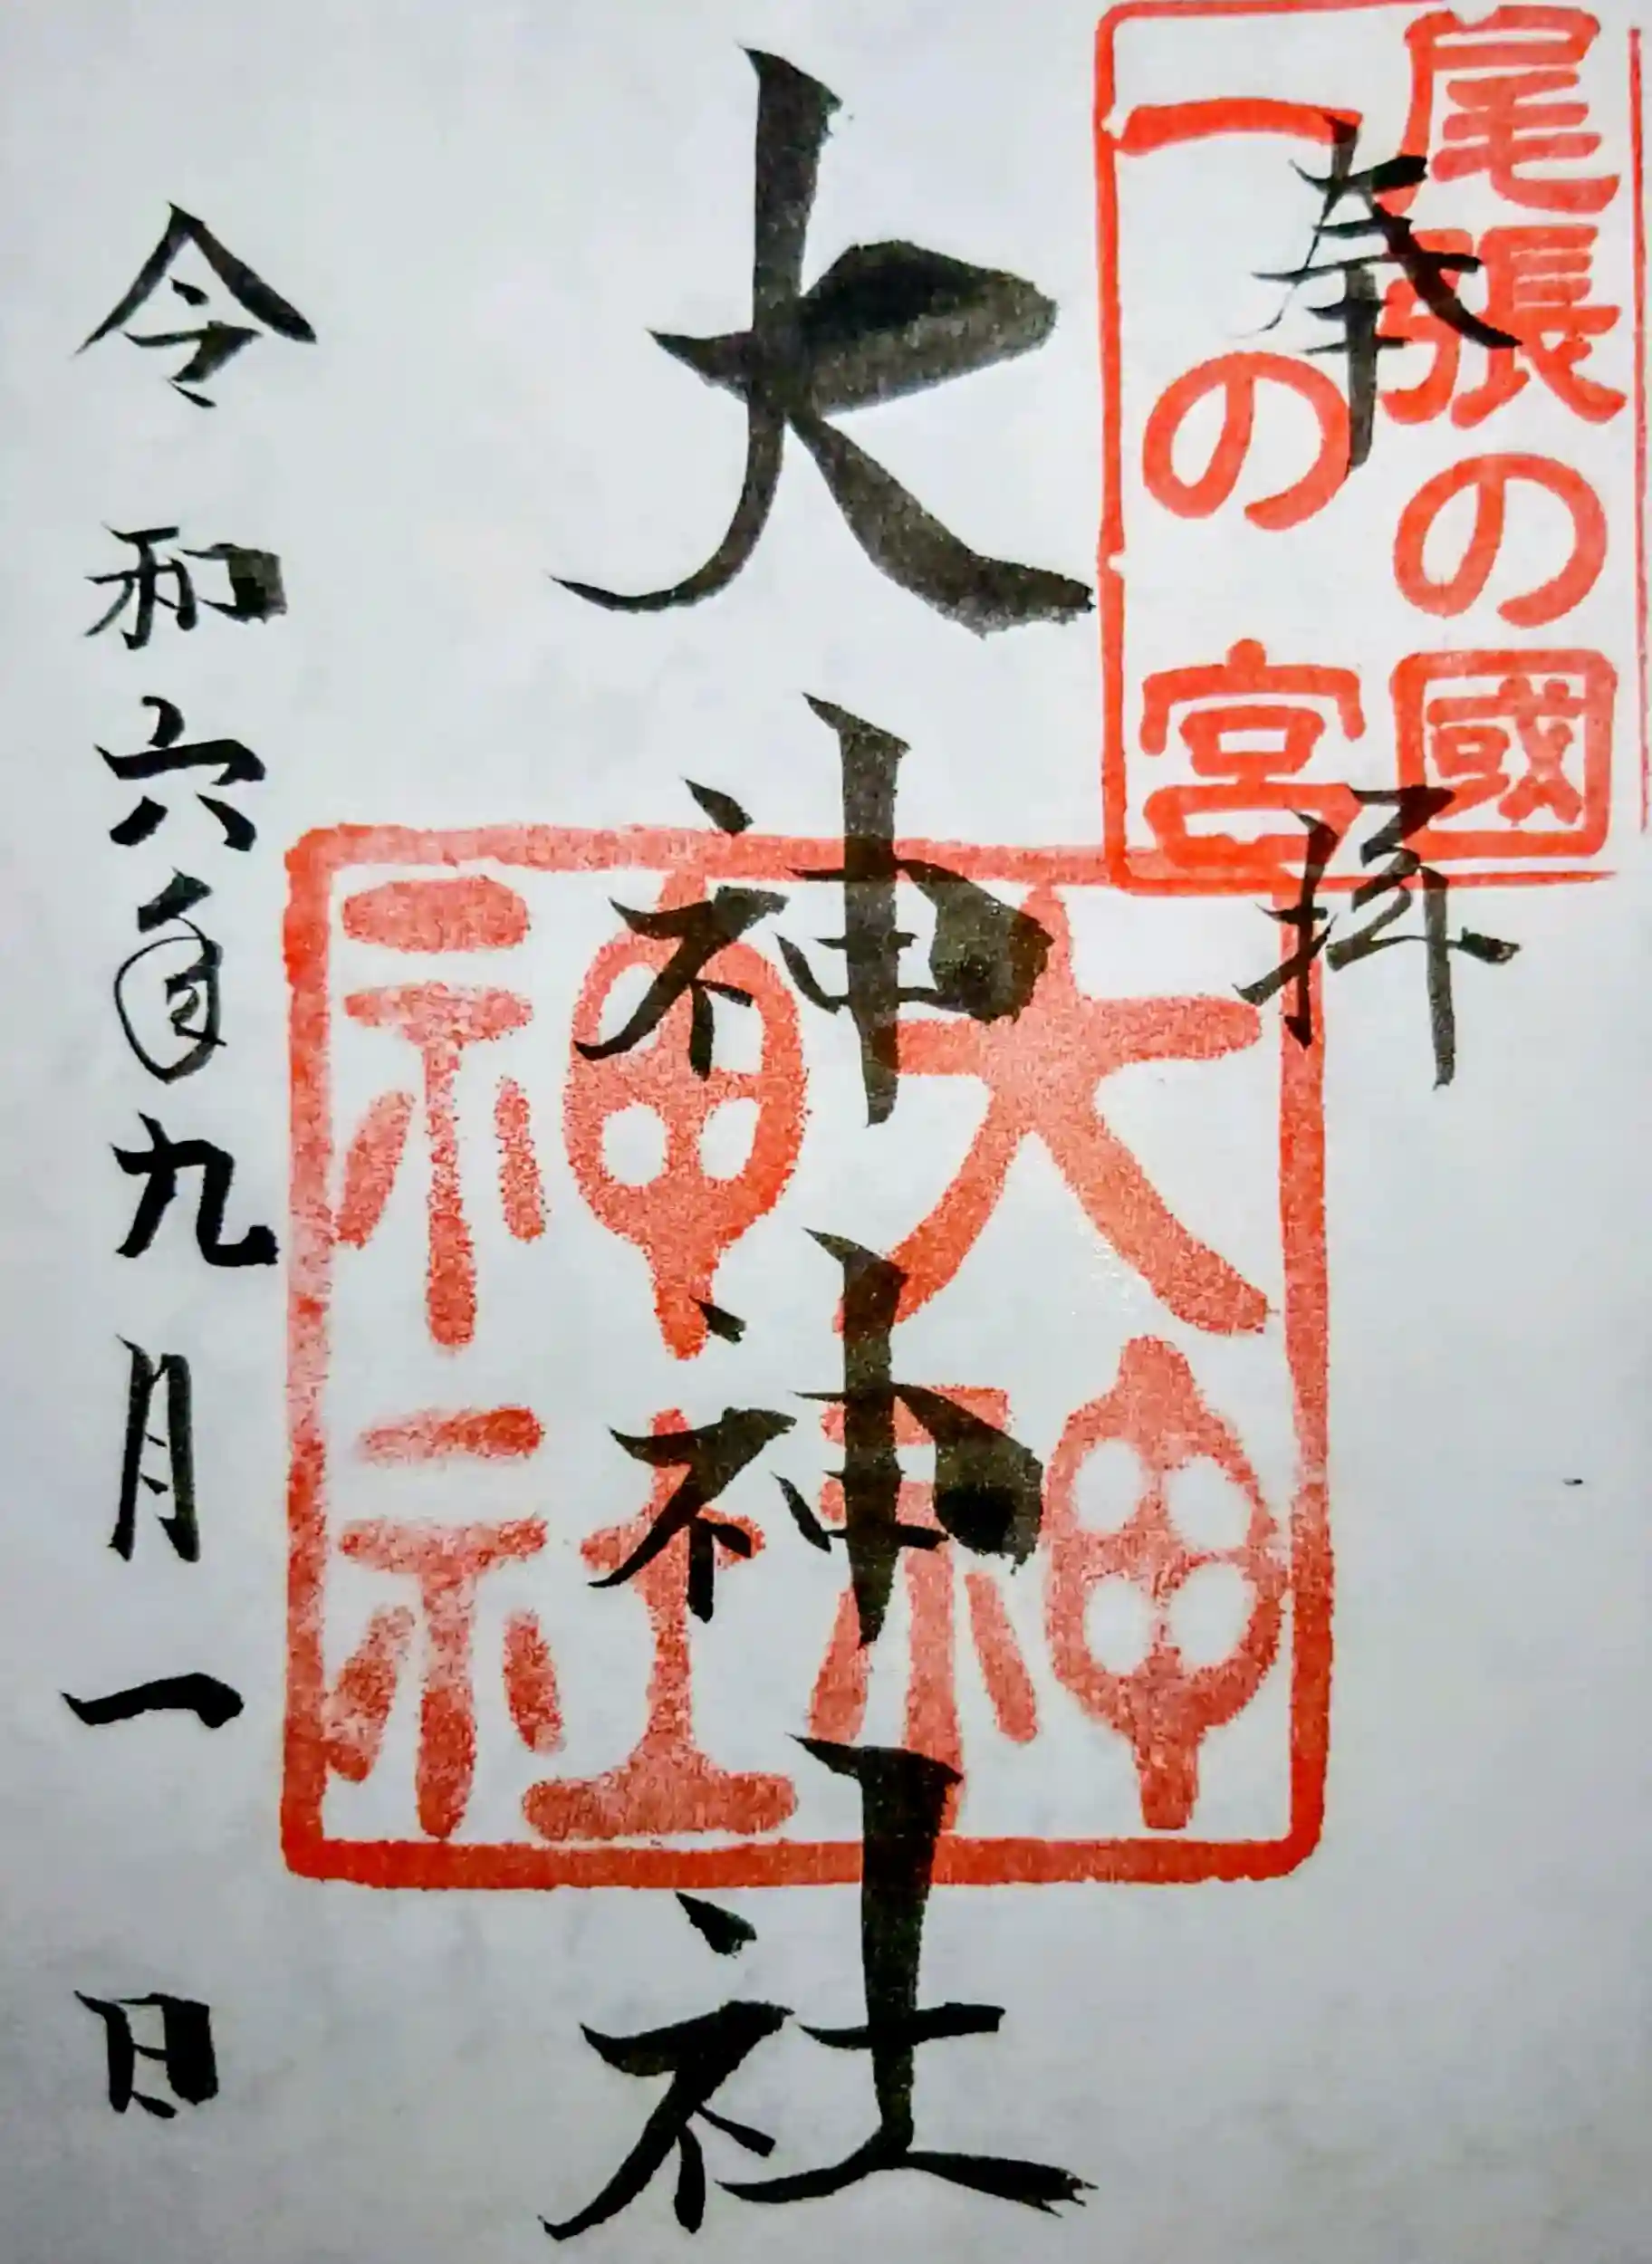 尾張の國
一の宮
奉拝
大神神社
大神
神社
令和六年九月一日